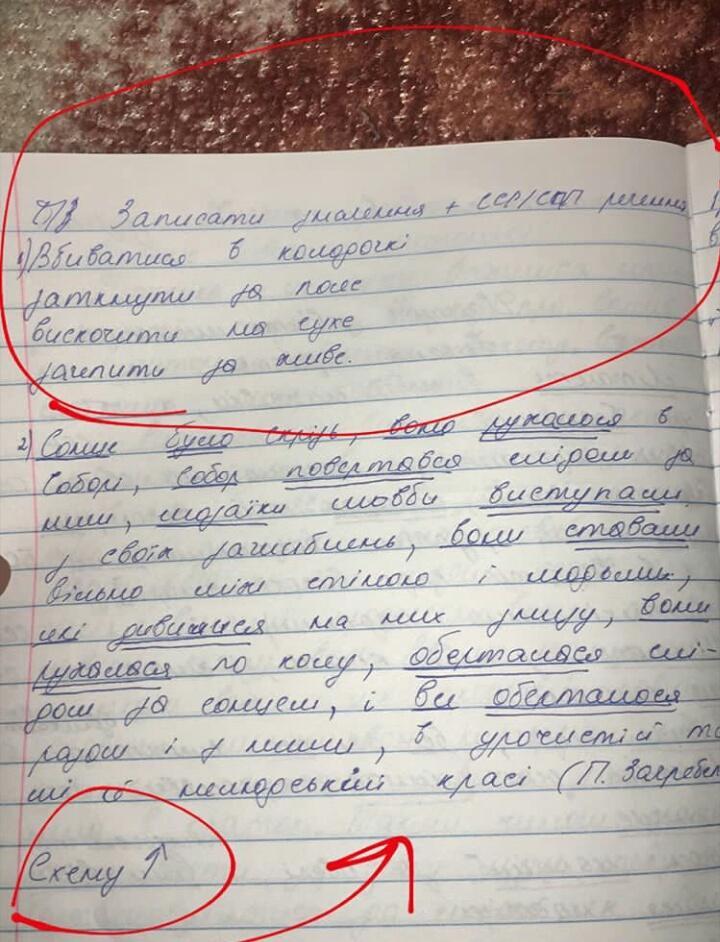 Д/З Записати значення + ССР/СПР речення
1) Вбиватися в колодочки
заткнути за пояс
вискочити на сухе
зачепити за живе.
2) Сонце було скрізь, воно рухалося в
соборі, собор повертався слідом за
ним, мозаїки мовби виступали
з своїх заглибень, вони ставали
вільно між стіною і людьми,
які дивилися на них знизу, вони
рухалася по колу, оберталася слі-
дом за сонцем, і все оберталося
разом і з ними, в урочистій то
нелюдській красі (П. Загребел
Схему ↑